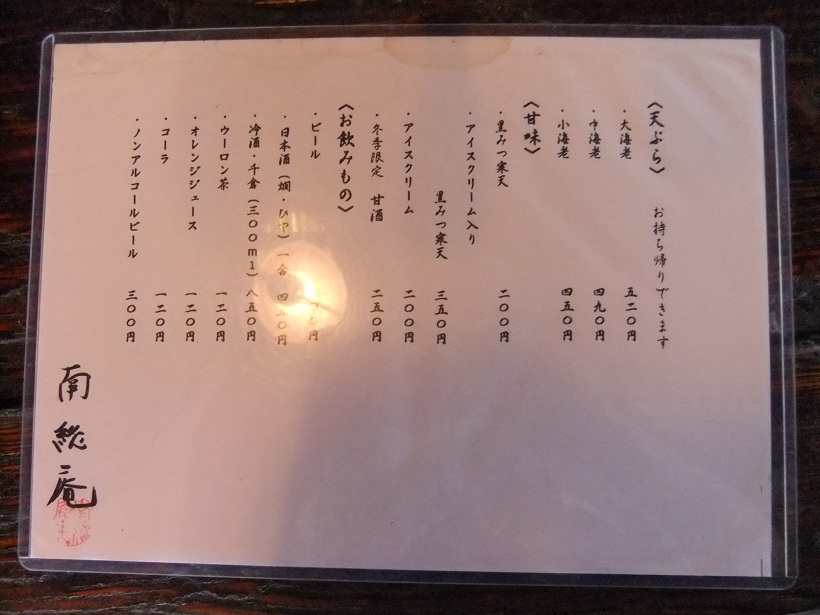 〈天ぷら〉 お持ち帰りできます
・大海老 五二〇円
・中海老 四九〇円
・小海老 四五〇円
〈甘味〉
・黒みつ寒天 二〇〇円
・アイスクリーム入り
黒みつ寒天 三五〇円
・アイスクリーム 二〇〇円
・冬季限定 甘酒 二五〇円
〈お飲みもの〉
・ビール 円
・日本酒（燗・ひや）一合 四五〇円
・冷酒・千倉（三〇〇ml） 八五〇円
・ウーロン茶 一二〇円
・オレンジジュース 一二〇円
・コーラ 一二〇円
・ノンアルコールビール 三〇〇円
南総庵